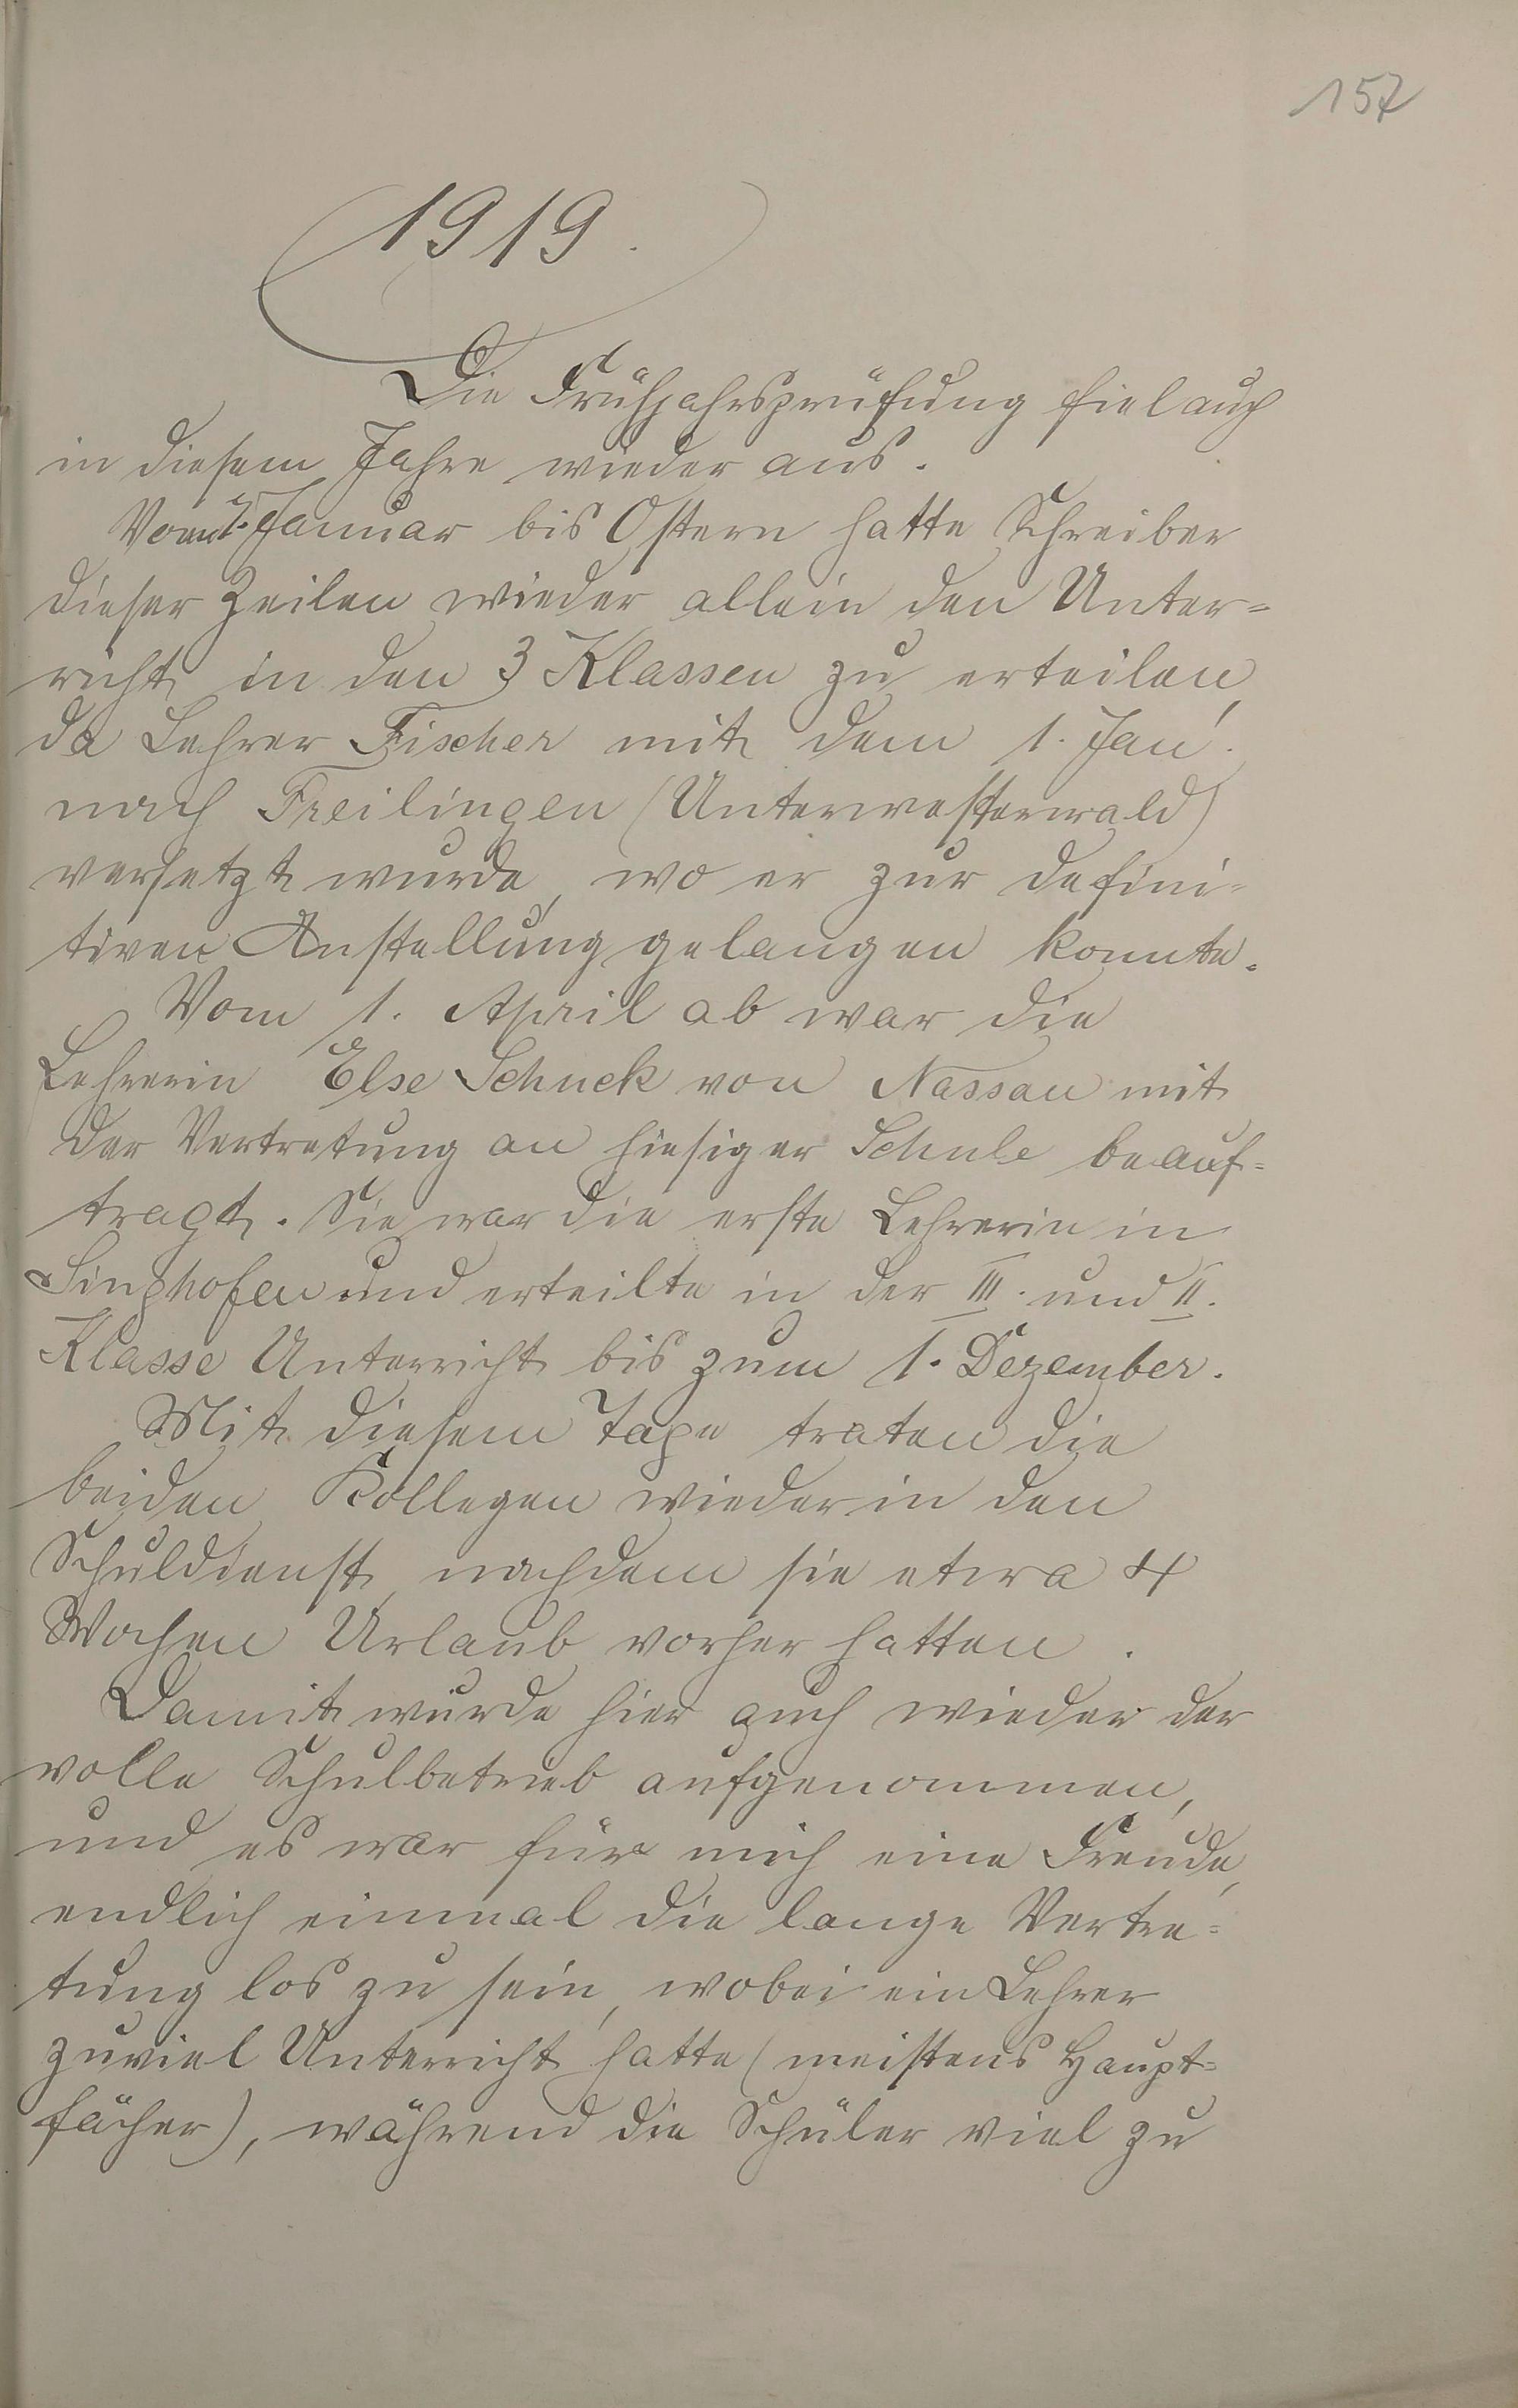 157
1919.
Die Frühjahrsprüfung fiel auch
in diesem Jahre wieder aus.
Vom 1. Januar bis Ostern hatte Schreiber
dieser Zeilen wieder allein den Unter=
richt in den 3 Klassen zu erteilen,
da Lehrer Fischer mit dem 1. Jan.
nach Freilingen (Unterwesterwald)
versetzt wurde, wo er zur defini=
tiven Anstellung gelangen konnte.
Vom 1. April ab war die
Lehrerin Else Schuck von Nassau mit
der Vertretung an hiesiger Schule beauf=
tragt. Sie war die erste Lehrerin in
Singhofen und erteilte in der III. und II.
Klasse Unterricht bis zum 1. Dezember.
Mit diesem Tage traten die
beiden Kollegen wieder in den
Schuldienst, nachdem sie etwa 4
Wochen Urlaub vorher hatten.
Damit wurde hier auch wieder der
volle Schulbetrieb aufgenommen,
und es war für mich eine Freude,
endlich einmal die lange Vertre=
tung los zu sein, wobei ein Lehrer
zuviel Unterricht hatte (meistens Haupt=
fächer), während die Schüler viel zu